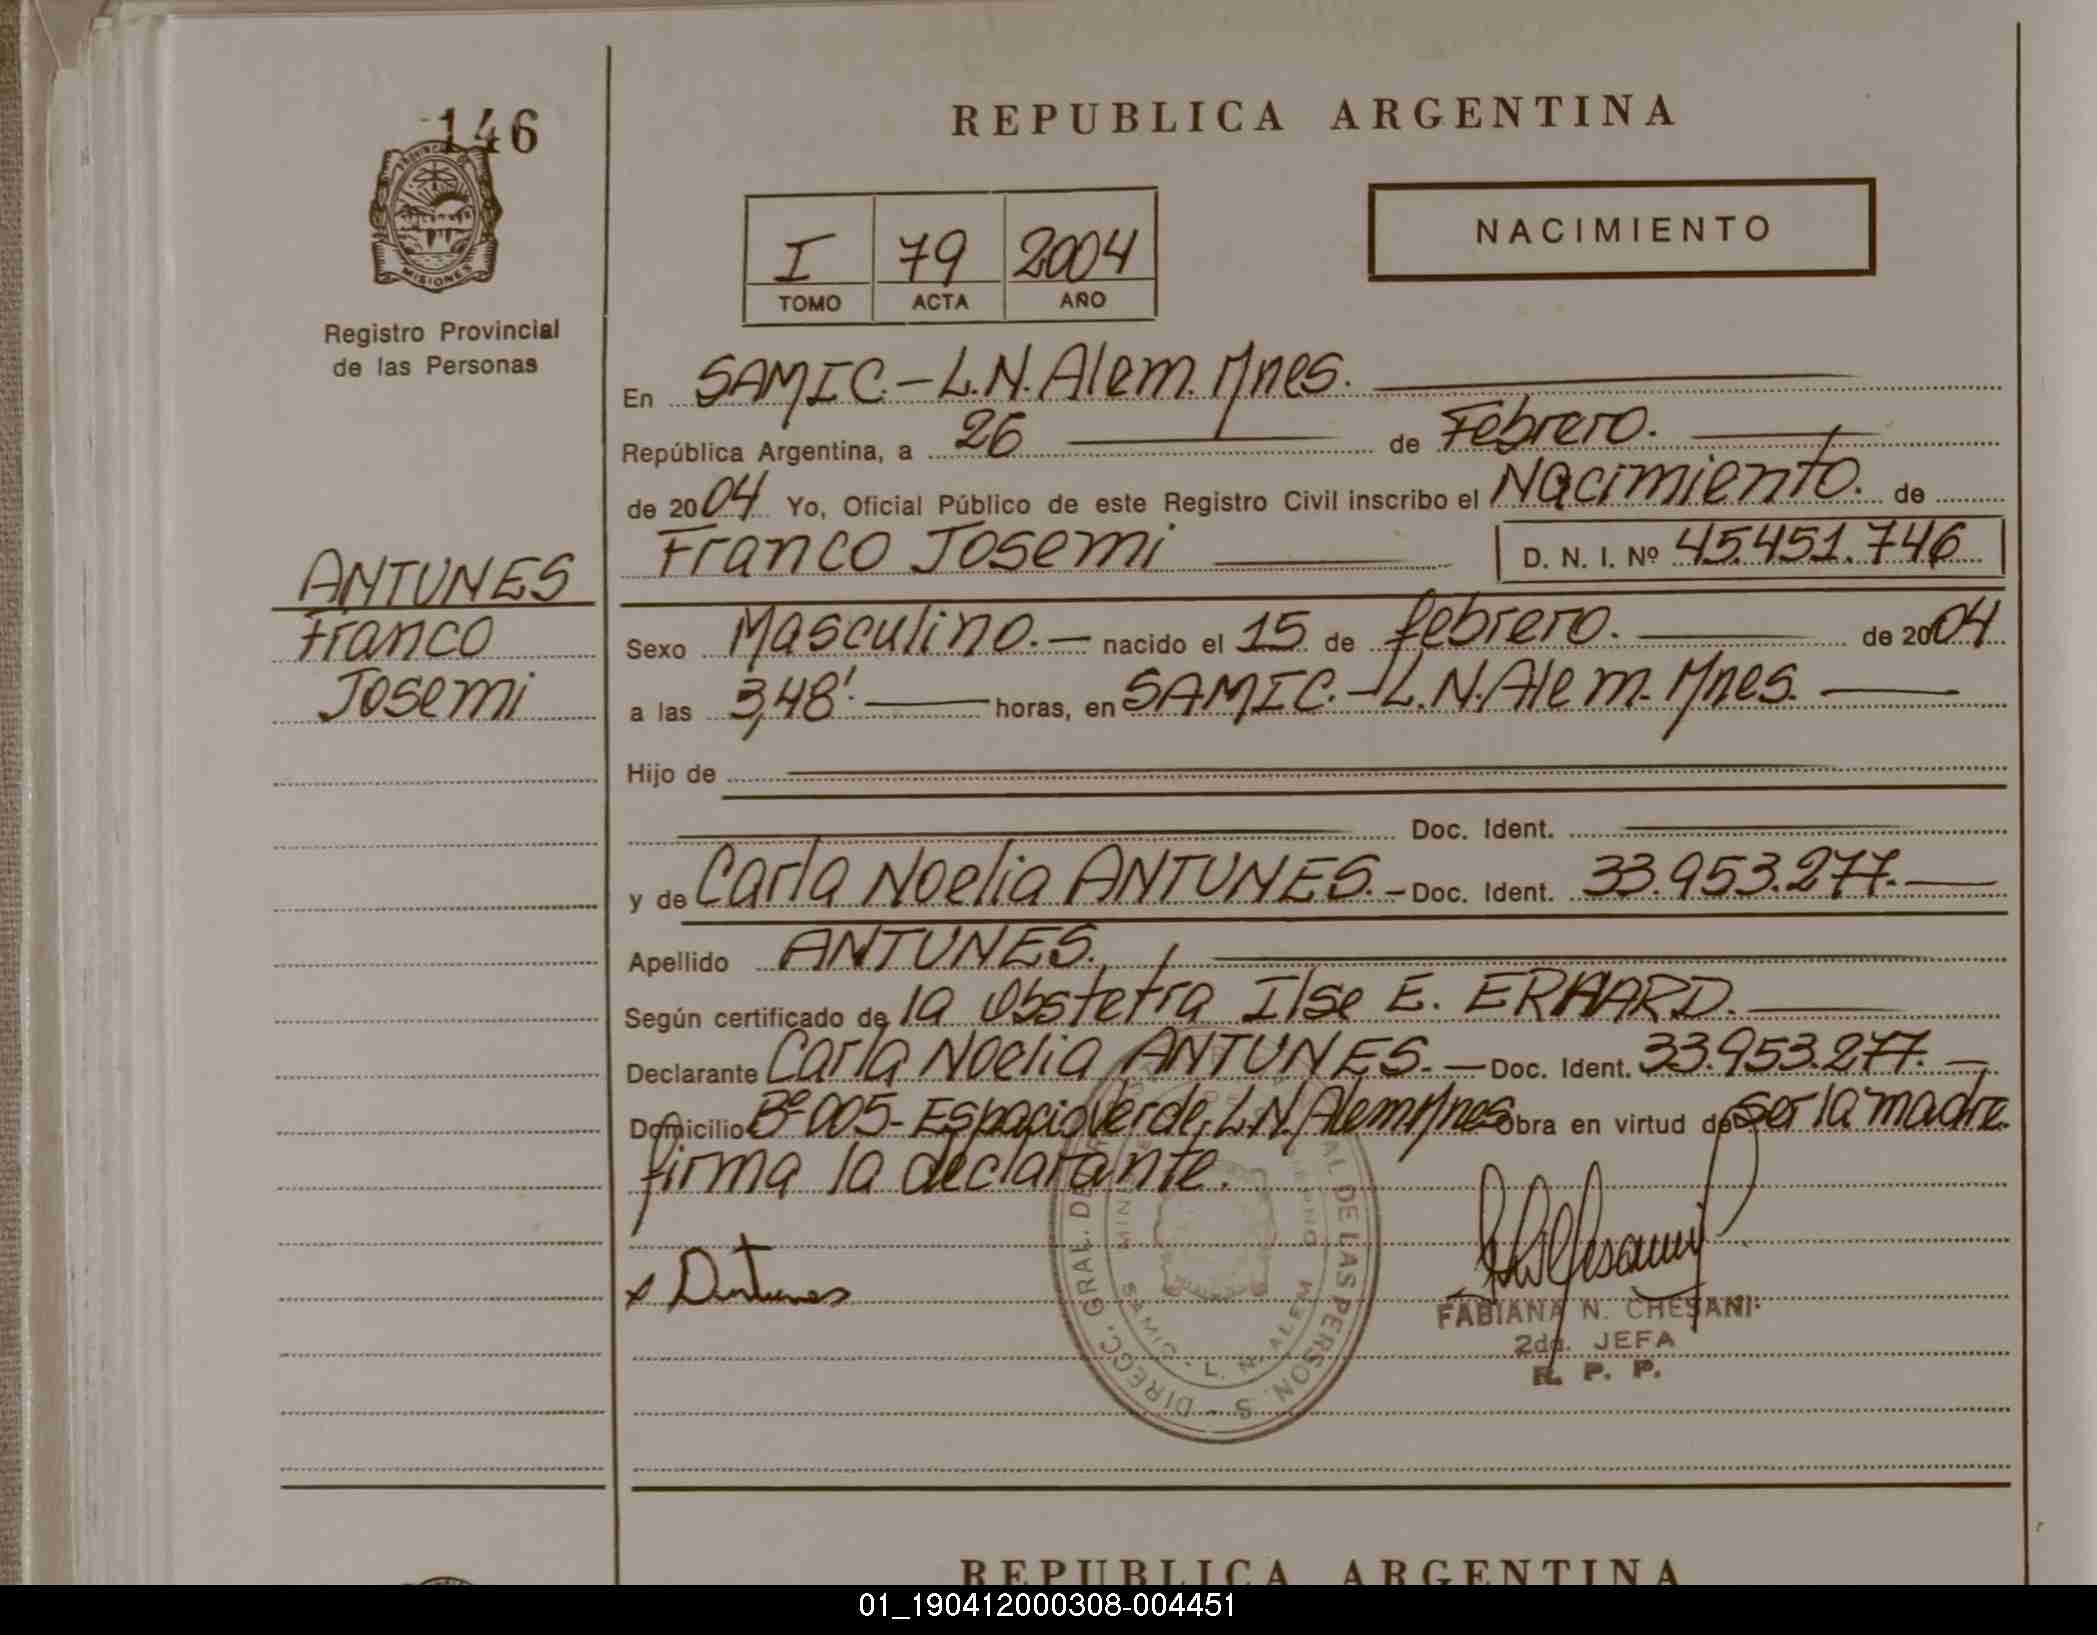 146
PROVINCIA DE
MISIONES
Registro Provincial
de las Personas
ANTUNES
Franco
Josemi
REPUBLICA ARGENTINA
I 79 2004
TOMO ACTA AÑO
NACIMIENTO
En SAMIC.-L.N.Alem.Mnes.
República Argentina, a 26 de Febrero.
de 2004 Yo, Oficial Público de este Registro Civil inscribo el Nacimiento. de
Franco Josemi D. N. I. Nº 45.451.746
Sexo Masculino.- nacido el 15 de febrero. de 2004
a las 3,48'. horas, en SAMIC.-L.N.Alem.Mnes.
Hijo de
Doc. Ident.
y de Carla Noelia ANTUNES.- Doc. Ident. 33.953.277.-
Apellido ANTUNES.
Según certificado de la Obstetra Ilse E. ERHARD.
Declarante Carla Noelia ANTUNES.- Doc. Ident. 33.953.277.-
Domicilio Bº-005-Espacio Verde, L.N.Alem Mnes obra en virtud de ser la madre
firma la declarante.
x Antunes
DIRECC. GRAL. DE L DE LAS PERSON. S
SAMIC - L. N. ALEM
FABIANA N. CHESANI
2da. JEFA
R. P. P.
REPUBLICA ARGENTINA
01_190412000308-004451